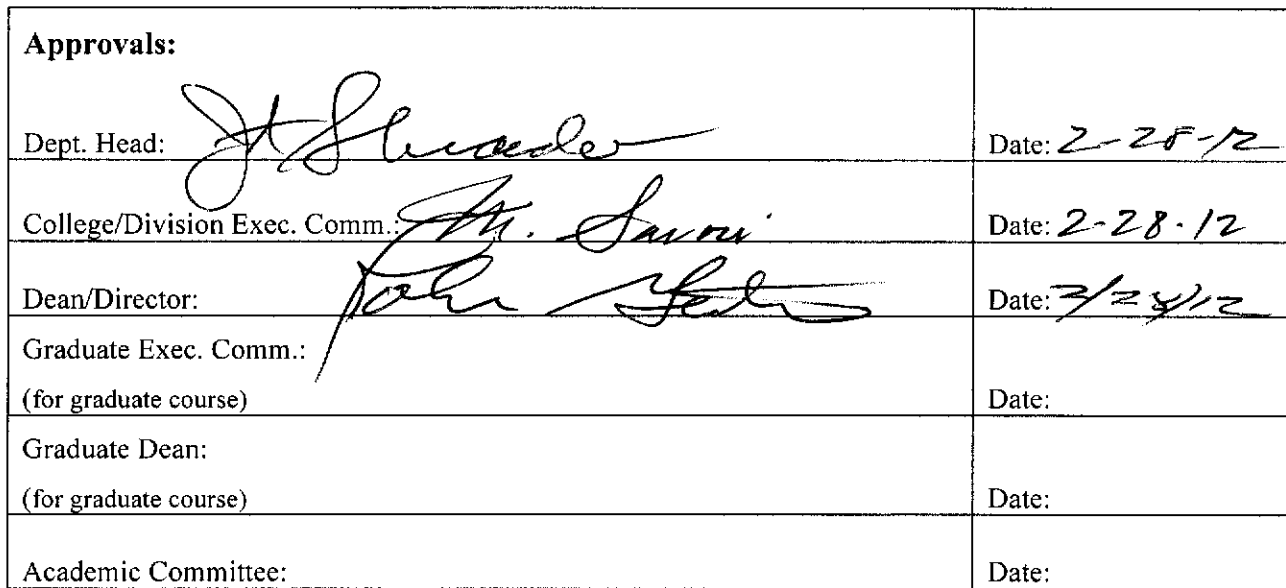 Approvals:
Dept. Head: Date: 2-28-12
College/Division Exec. Comm.: M. Savoie Date: 2-28-12
Dean/Director: John Date:
Graduate Exec. Comm.:
(for graduate course) Date:
Graduate Dean:
(for graduate course) Date:
Academic Committee: Date: